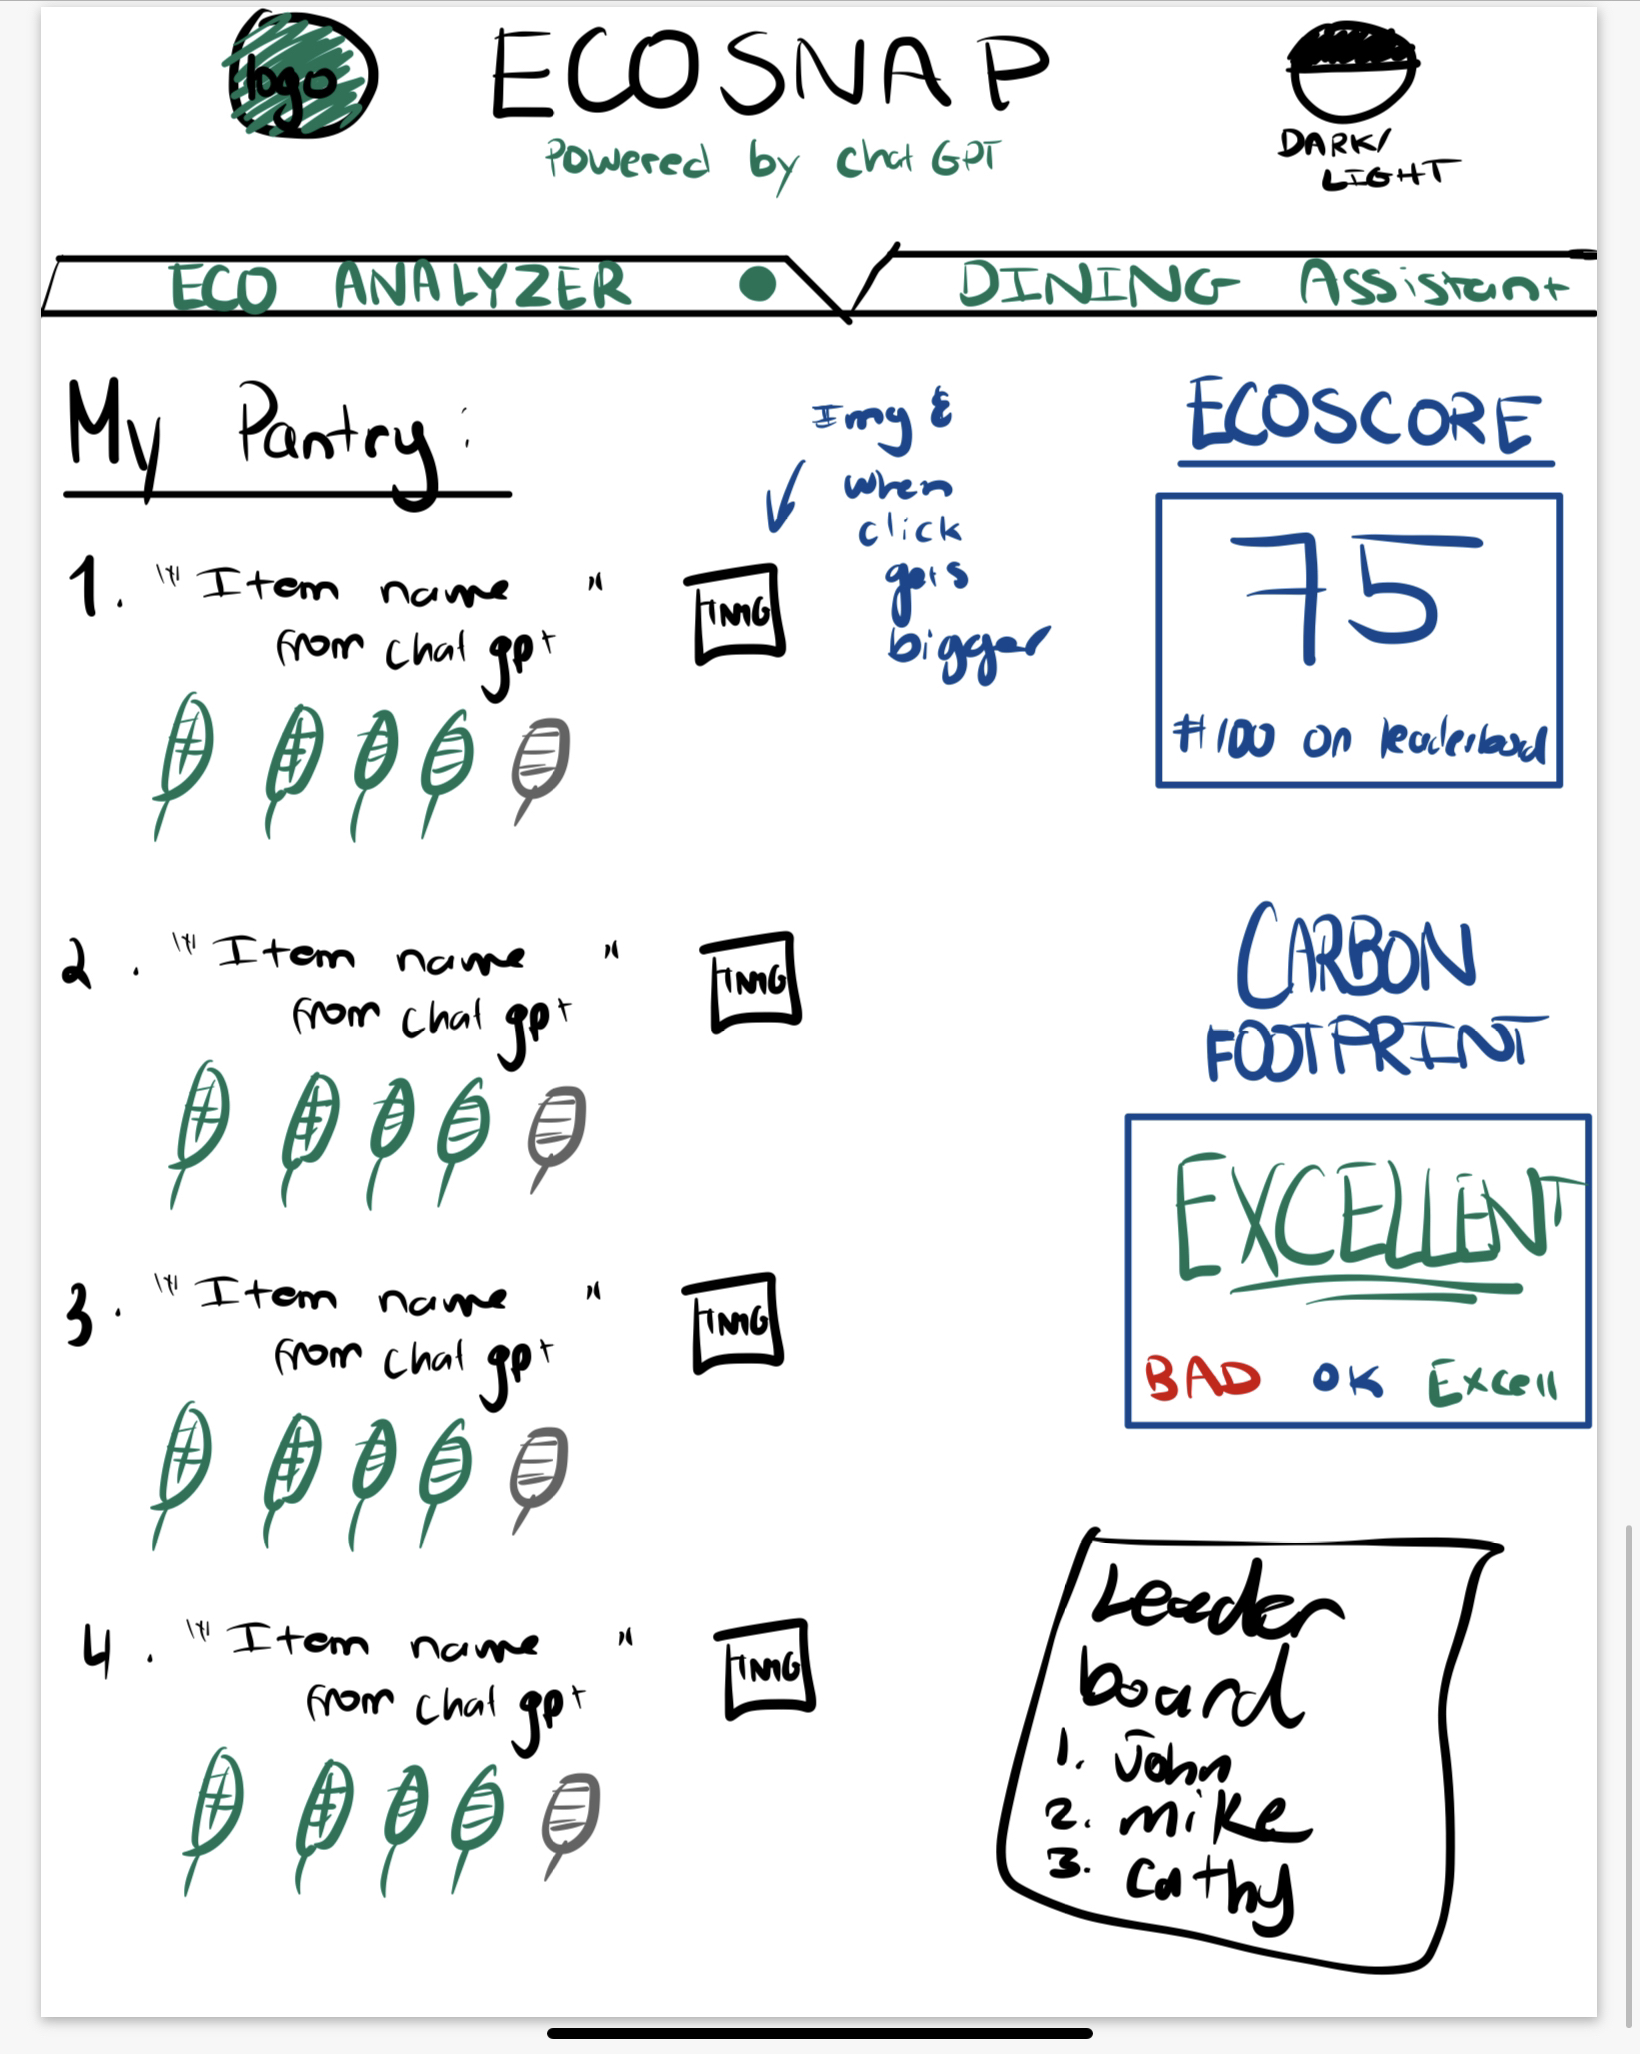 logo
ECOSNAP
Powered by chat GPT
DARK/
LIGHT
ECO ANALYZER
DINING Assistant
My Pantry:
Img &
when
click
gets
bigger
1. "Item name "
from chat gpt
IMG
2. "Item name "
from chat gpt
IMG
3. "Item name "
from chat gpt
IMG
4. "Item name "
from chat gpt
IMG
ECOSCORE
75
#100 on leaderboard
CARBON
FOOTPRINT
EXCELLENT
BAD OK Excell
Leader
board
1. John
2. mike
3. cathy